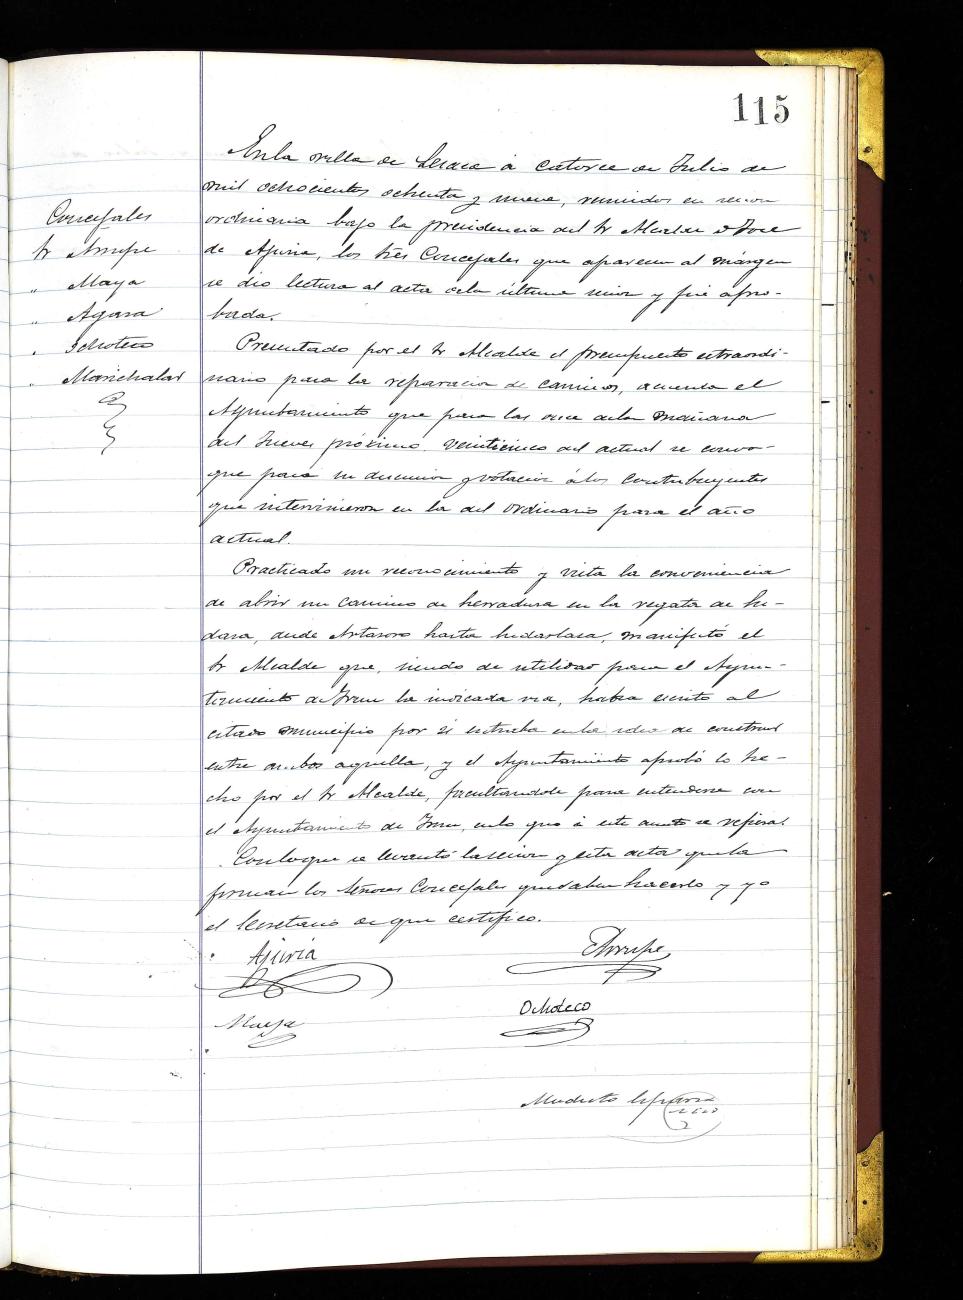 115
En la villa de Lesaca á catorce de Julio de
mil ochocientos ochenta y nueve, reunidos en sesion
ordinaria bajo la presidencia del Sr Alcalde D Jose
de Ajuria, los tres Concejales que aparecen al márgen
se dio lectura al acta dela última sesion y fué apro-
bada.
Concejales
Sr
" Maya
" Agara
" Ochoteco
" Marichalar
Presentado por el Sr Alcalde el presupuesto extraordi-
nario para la reparacion de caminos, acuerda el
Ayuntamiento que para las once dela mañana
del Jueves próximo veinticinco del actual se convo-
que para su discusion y votacion álos Contribuyentes
que intervinieron en la del ordinario para el año
actual.
Practicado un reconocimiento y vista la conveniencia
de abrir un camino de herradura en la regata de
desde hasta manifestó el
Sr Alcalde que, siendo de utilidad para el Ayun-
tamiento de Irun la indicada via, habia escrito al
citado municipio por si entraba en la idea de construir
entre ambos aquella, y el Ayuntamiento aprobó lo he-
cho por el Sr Alcalde, facultandole para entenderse con
el Ayuntamiento de Irun, enlo que á este asunto se refiera.
Conloque se levantó lasesion y esta acta quela
firman los Señores Concejales que saben hacerlo y yo
el Secretario de que certifico.
Ajuria
Maya
Ochoteco
Modesto